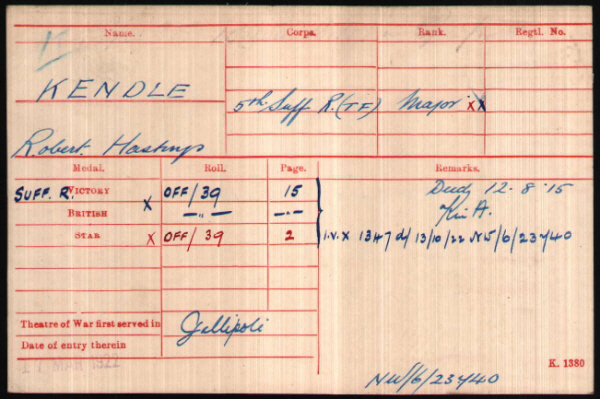 Name. Corps. Rank. Regtl. No.
KENDLE
5th Suff R. (TF) Major XX
Robert Hastings
Medal. Roll. Page. Remarks.
SUFF. R. VICTORY X OFF/39 15 Died 12.8.15
BRITISH — " — — " — K in A.
STAR X OFF/39 2 I.V.X 1347 d/ 13/10/22 NW/6/23740
Theatre of War first served in Gallipoli
Date of entry therein
MAR 1922
K. 1380
NW/6/23740